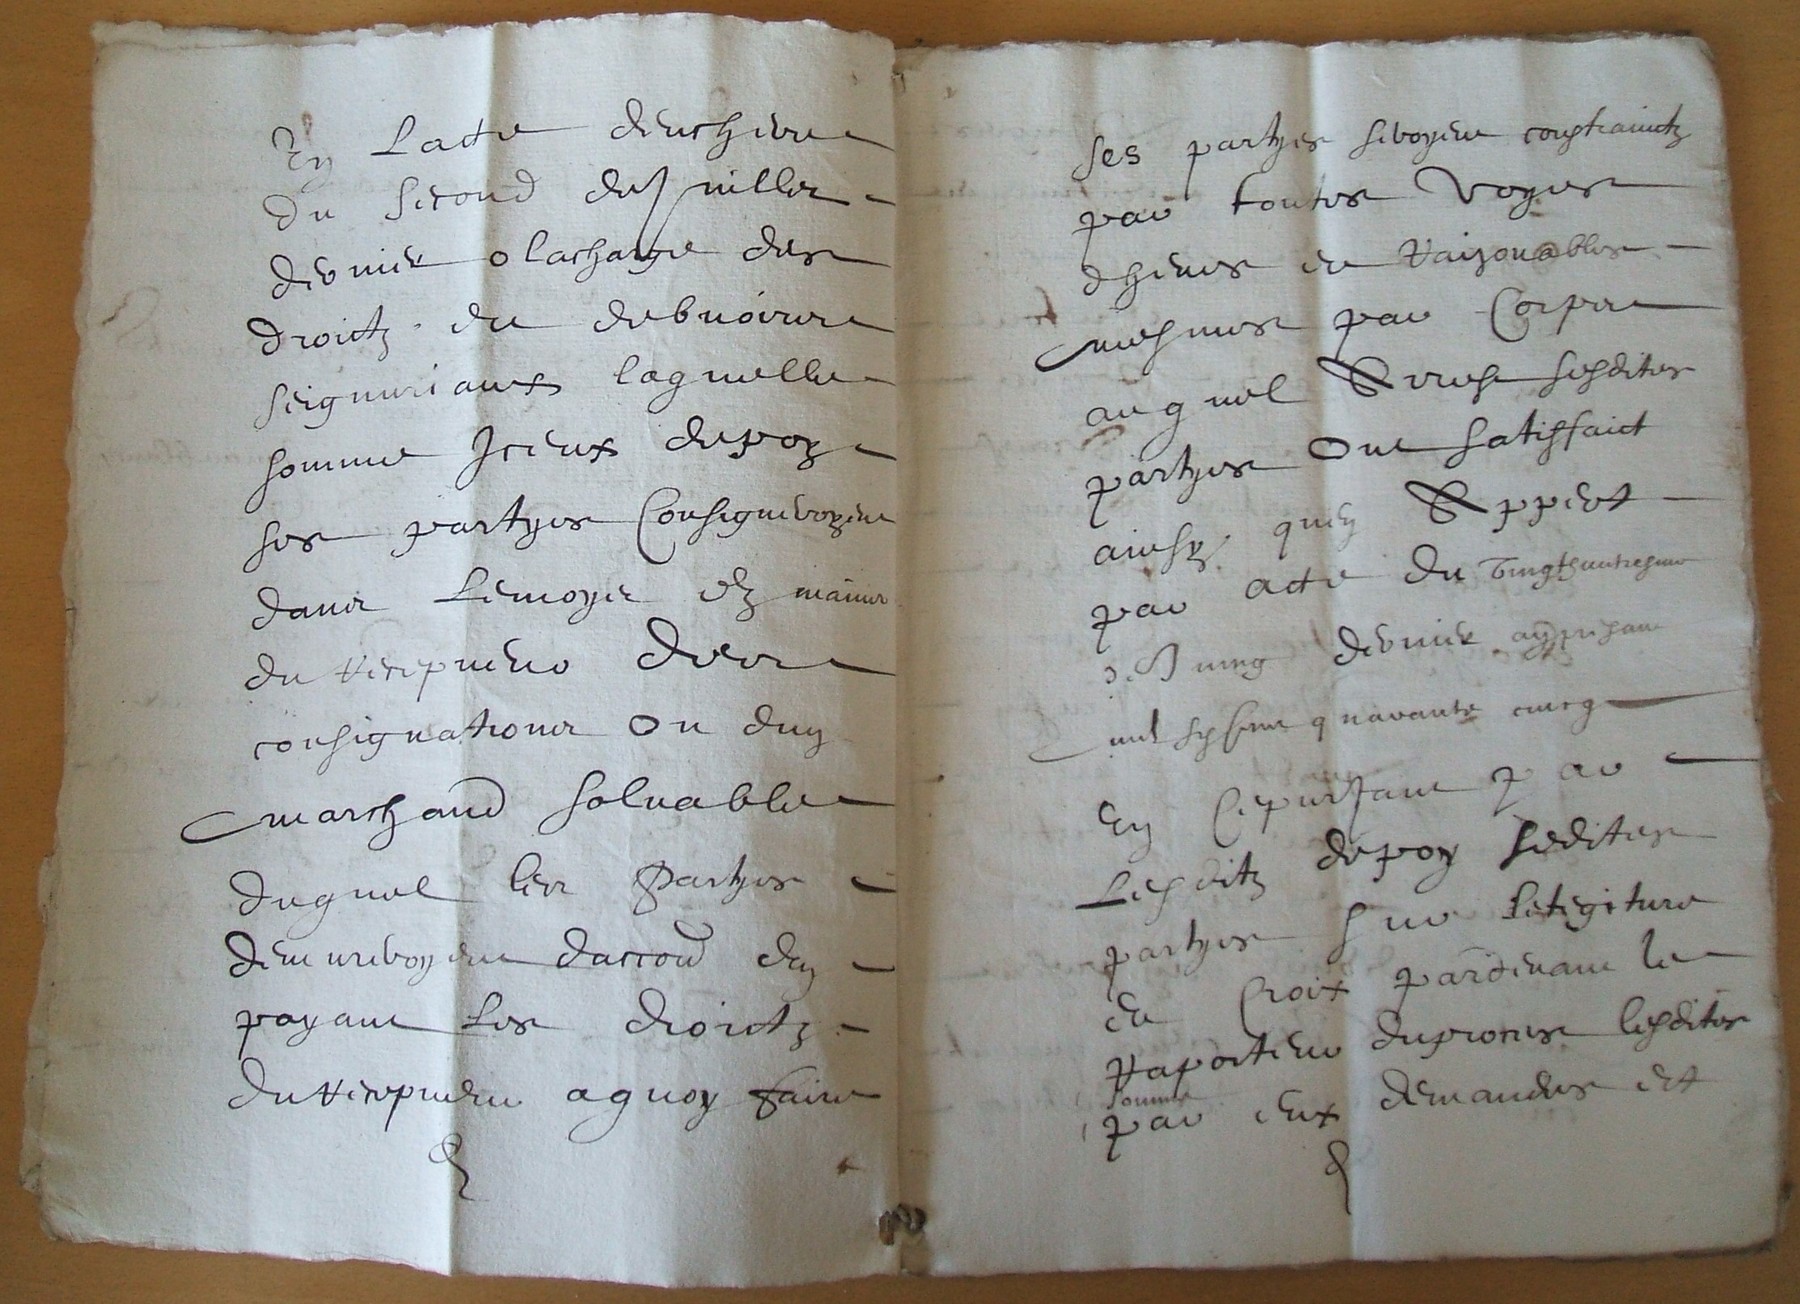 En lacte denchere
du second de juillet
dernier o la charge des
droictz et debvoirs
seigneuriaux laquelle
somme iceux depoz
ses partyes consigneroyent
dans le moys es mains
du recepveur des
consignations ou dun
marchand solvable
duquel les partyes
demeureroyent daccord en
payant les droictz
du recepveur a quoy faire
ses partyes seroyent constrainctz
par toutes voyes
dheues et raizonnables
mesmes par corps
auquel lesdites
partyes ont satisffaict
ainsy quen appert
par acte du
de dernier
mil six cens quarante cincq
En par
lesditz depoz lesdites
partyes sur
et croix par devant le
raporteur du proces lesdites
somme
par eux demandes et